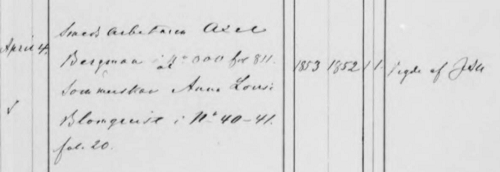 April 4.
Smeds Arbetaren Axel
Bergman i N° 000 fol 811.
Sömmerskan Anna Lovis.
Blomqvist i N° 40-41.
fol. 20.
1853 1852 1.
af